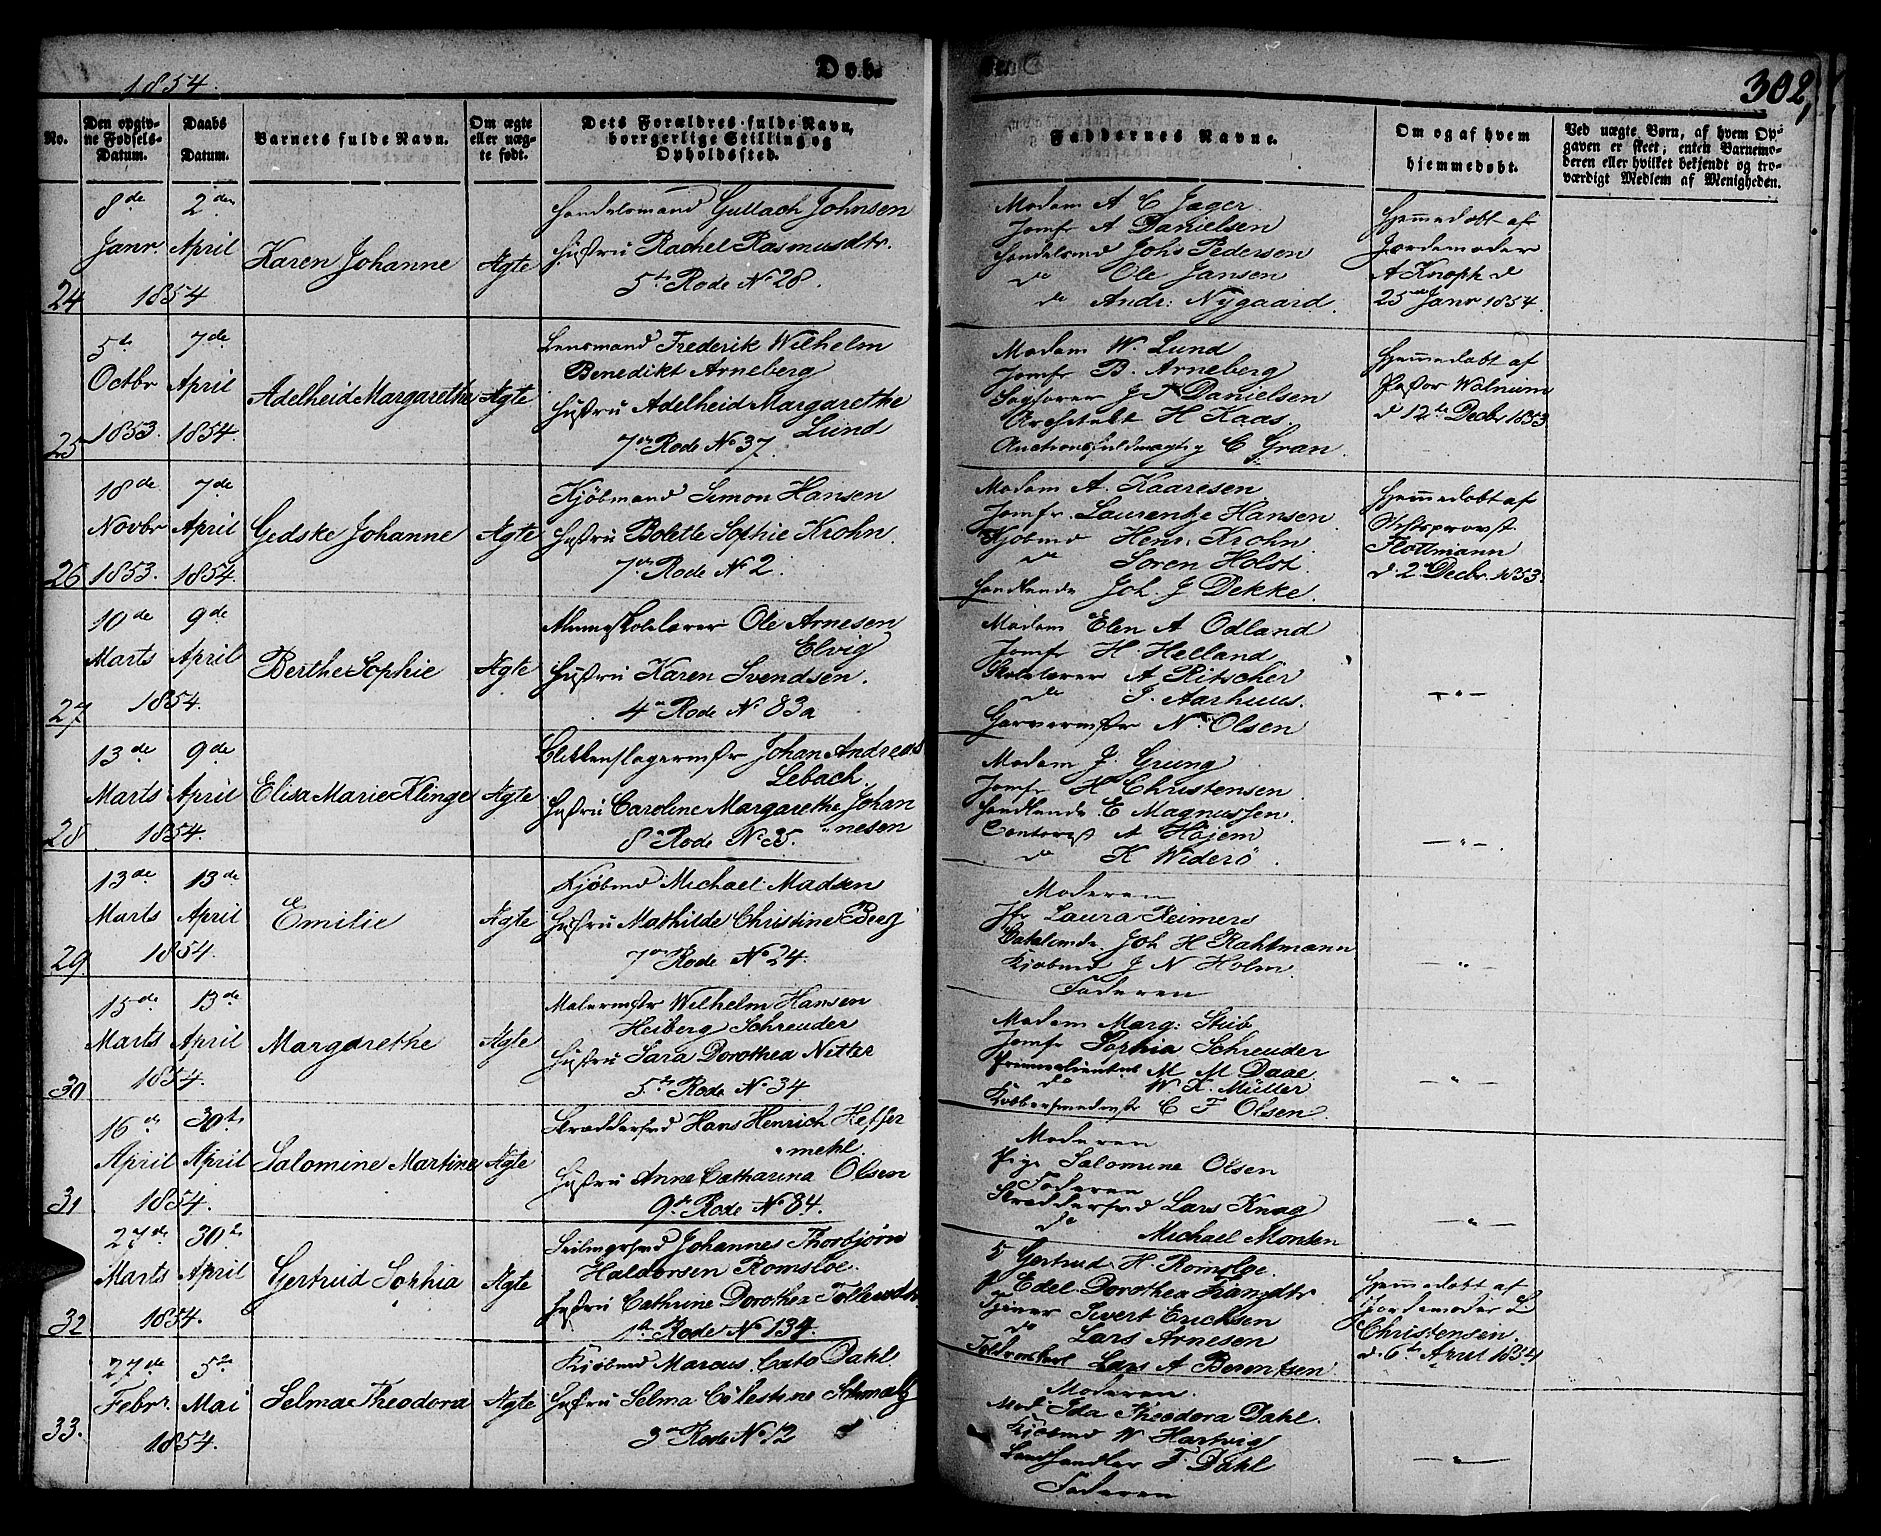 1854.
Døbte
302,
No.
Den opgivne Fødsels-Datum.
Daabs Datum.
Barnets fulde Navn.
Om ægte eller uægte født.
Dets Forældres fulde Navn, borgerlige Stilling og Opholdssted.
Faddernes Navne.
Om og af hvem hjemmedøbt.
Ved uægte Børn, af hvem Opgaven er skeet; enten Barnemoderen eller hvilket bekjendt og troværdigt Medlem af Menigheden.
24
8de Janr. 1854
2den April
Karen Johanne
Ægte
Handelsmand Gullach Johnsen
Hustru Rachel Rasmusdtr.
5te Rode No 28.
Madam A C Jæger
Jomfr A Danielsen
Handelsmd Johs Pedersen
do Ole Jansen
do Andr: Nygaard.
Hjemmedøbt af
Jordemoder
A Knoph d
25de Janr 1854.
25
5te Octbr 1853.
7de April 1854.
Adelheid Margarethe
Ægte
Lensmand Frederik Wilhelm
Benedikt Arneberg
Hustru Adelheid Margarethe
Lund
7de Rode No 37.
Madam W. Lund
Jomfr B. Arneberg
J Danielsen
Architekt H Kaas
Auctionsfuldmægtig C Gran.
Hjemmedøbt af
Pastor Walnum
d 12te Decbr 1853
26
18de Novbr 1853.
7de April 1854.
Gedske Johanne
Ægte
Kjøbmand Simon Hansen
Hustru Bolette Sophie Krohn.
7de Rode No 2.
Madam A. Kaaresen
Jomfr Laurentze Hansen
Kjøbmd Henr. Krohn
do Søren Holst.
Handlende Joh. J Dekke.
Hjemmedøbt af
Stiftsprovst
Flottmann
d. 2de Decbr. 1853.
27
10de Marts 1854.
9de April
Berthe Sophie
Ægte
Almueskolelærer Ole Arnesen
Elvig
Hustru Karen Svendsen.
4de Rode No 83a
Madam Elen A Odland
Jomfr H. Helland
Skolelærer A Ritscher
do J. Aarhuus.
Garvermstr N. Olsen
— " —
28
13de Marts 1854.
9de April
Elisa Marie Klinge
Ægte
Blikkenslagermstr Johan Andreas
Lebach.
Hustru Caroline Margarethe Johan
nesen
8de Rode No 35.
Madam J. Grung
Jomfr H Christensen
Handlende E Magnussen.
Contorist A Højem
do K Widerø.
— " —.
29
13de Marts 1854.
13de April
Emilie
Ægte
Kjøbmd Michael Madsen
Hustru Mathilde Christine Berg
7de Rode No 24.
Moderen
Jfr Laura Reimers
Joh H Rahtmann
Kjøbmd J N Holm.
Faderen
— " —
30
15de Marts 1854.
13de April
Margarethe
Ægte
Malermstr Wilhelm Hansen
Heiberg Schreuder
Hustru Sara Dorothea Nitter
5te Rode No 34
Madam Marg: Stub
Jomfr Sophia Schreuder
Premierlieutnt M M Daae
do W. K. Müller
Kobbersmedmstr C F Olsen.
— " —
31
16de April 1854.
30te April
Salomine Martine
Ægte
Skræddersvd Hans Henrich Heffer
mehl.
Hustru Anne Catharina Olsen
9de Rode No 84.
Moderen
Pige Salomine Olsen
Faderen
Skræddersvd Lars Knag
do Michael Monsen
— " —
32
27de Marts 1854.
30te April
Gertrud Sophia
Ægte
Seilmagersvd Johannes Thorbjørn
Haldorsen Romsloe.
Hustru Cathrine Dorothea Tollendtr
1ste Rode No 134.
Gertrud H. Romsloe.
Edel Dorothea
Tjener Sivert Erichsen
do Lars Arnesen
Lars A Berentsen.
Hjemmedøbt af
Jordemoder L
Christensen.
d. 6te April 1854
33.
27de Febr. 1854.
5te Mai
Selma Theodora
Ægte
Kjøbmd Marcus Cato Dahl.
Hustru Selma Cølestine Schmalz
3de Rode No 12
Moderen.
Mad Ida Theodora Dahl.
Kjøbmd W Hartvig
Landhandler F. Dahl
Faderen
— " —